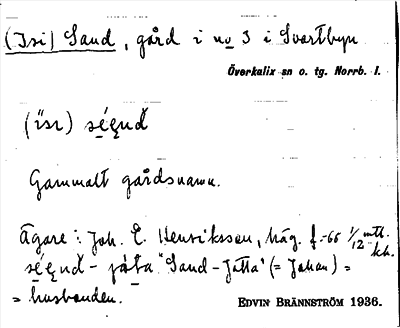 (Isi) Sand, gård i no 3 i Svartbyn
Överkalix sn o. tg. Norrb. l.
Gammalt gårdsnamn.
Ägare: Joh. E. Henriksson, häg. f. -66 1/12 mtl.
"Sand-Jåtta" (= Johan) = kh.
= husbonden.
EDVIN BRÄNNSTRÖM 1936.